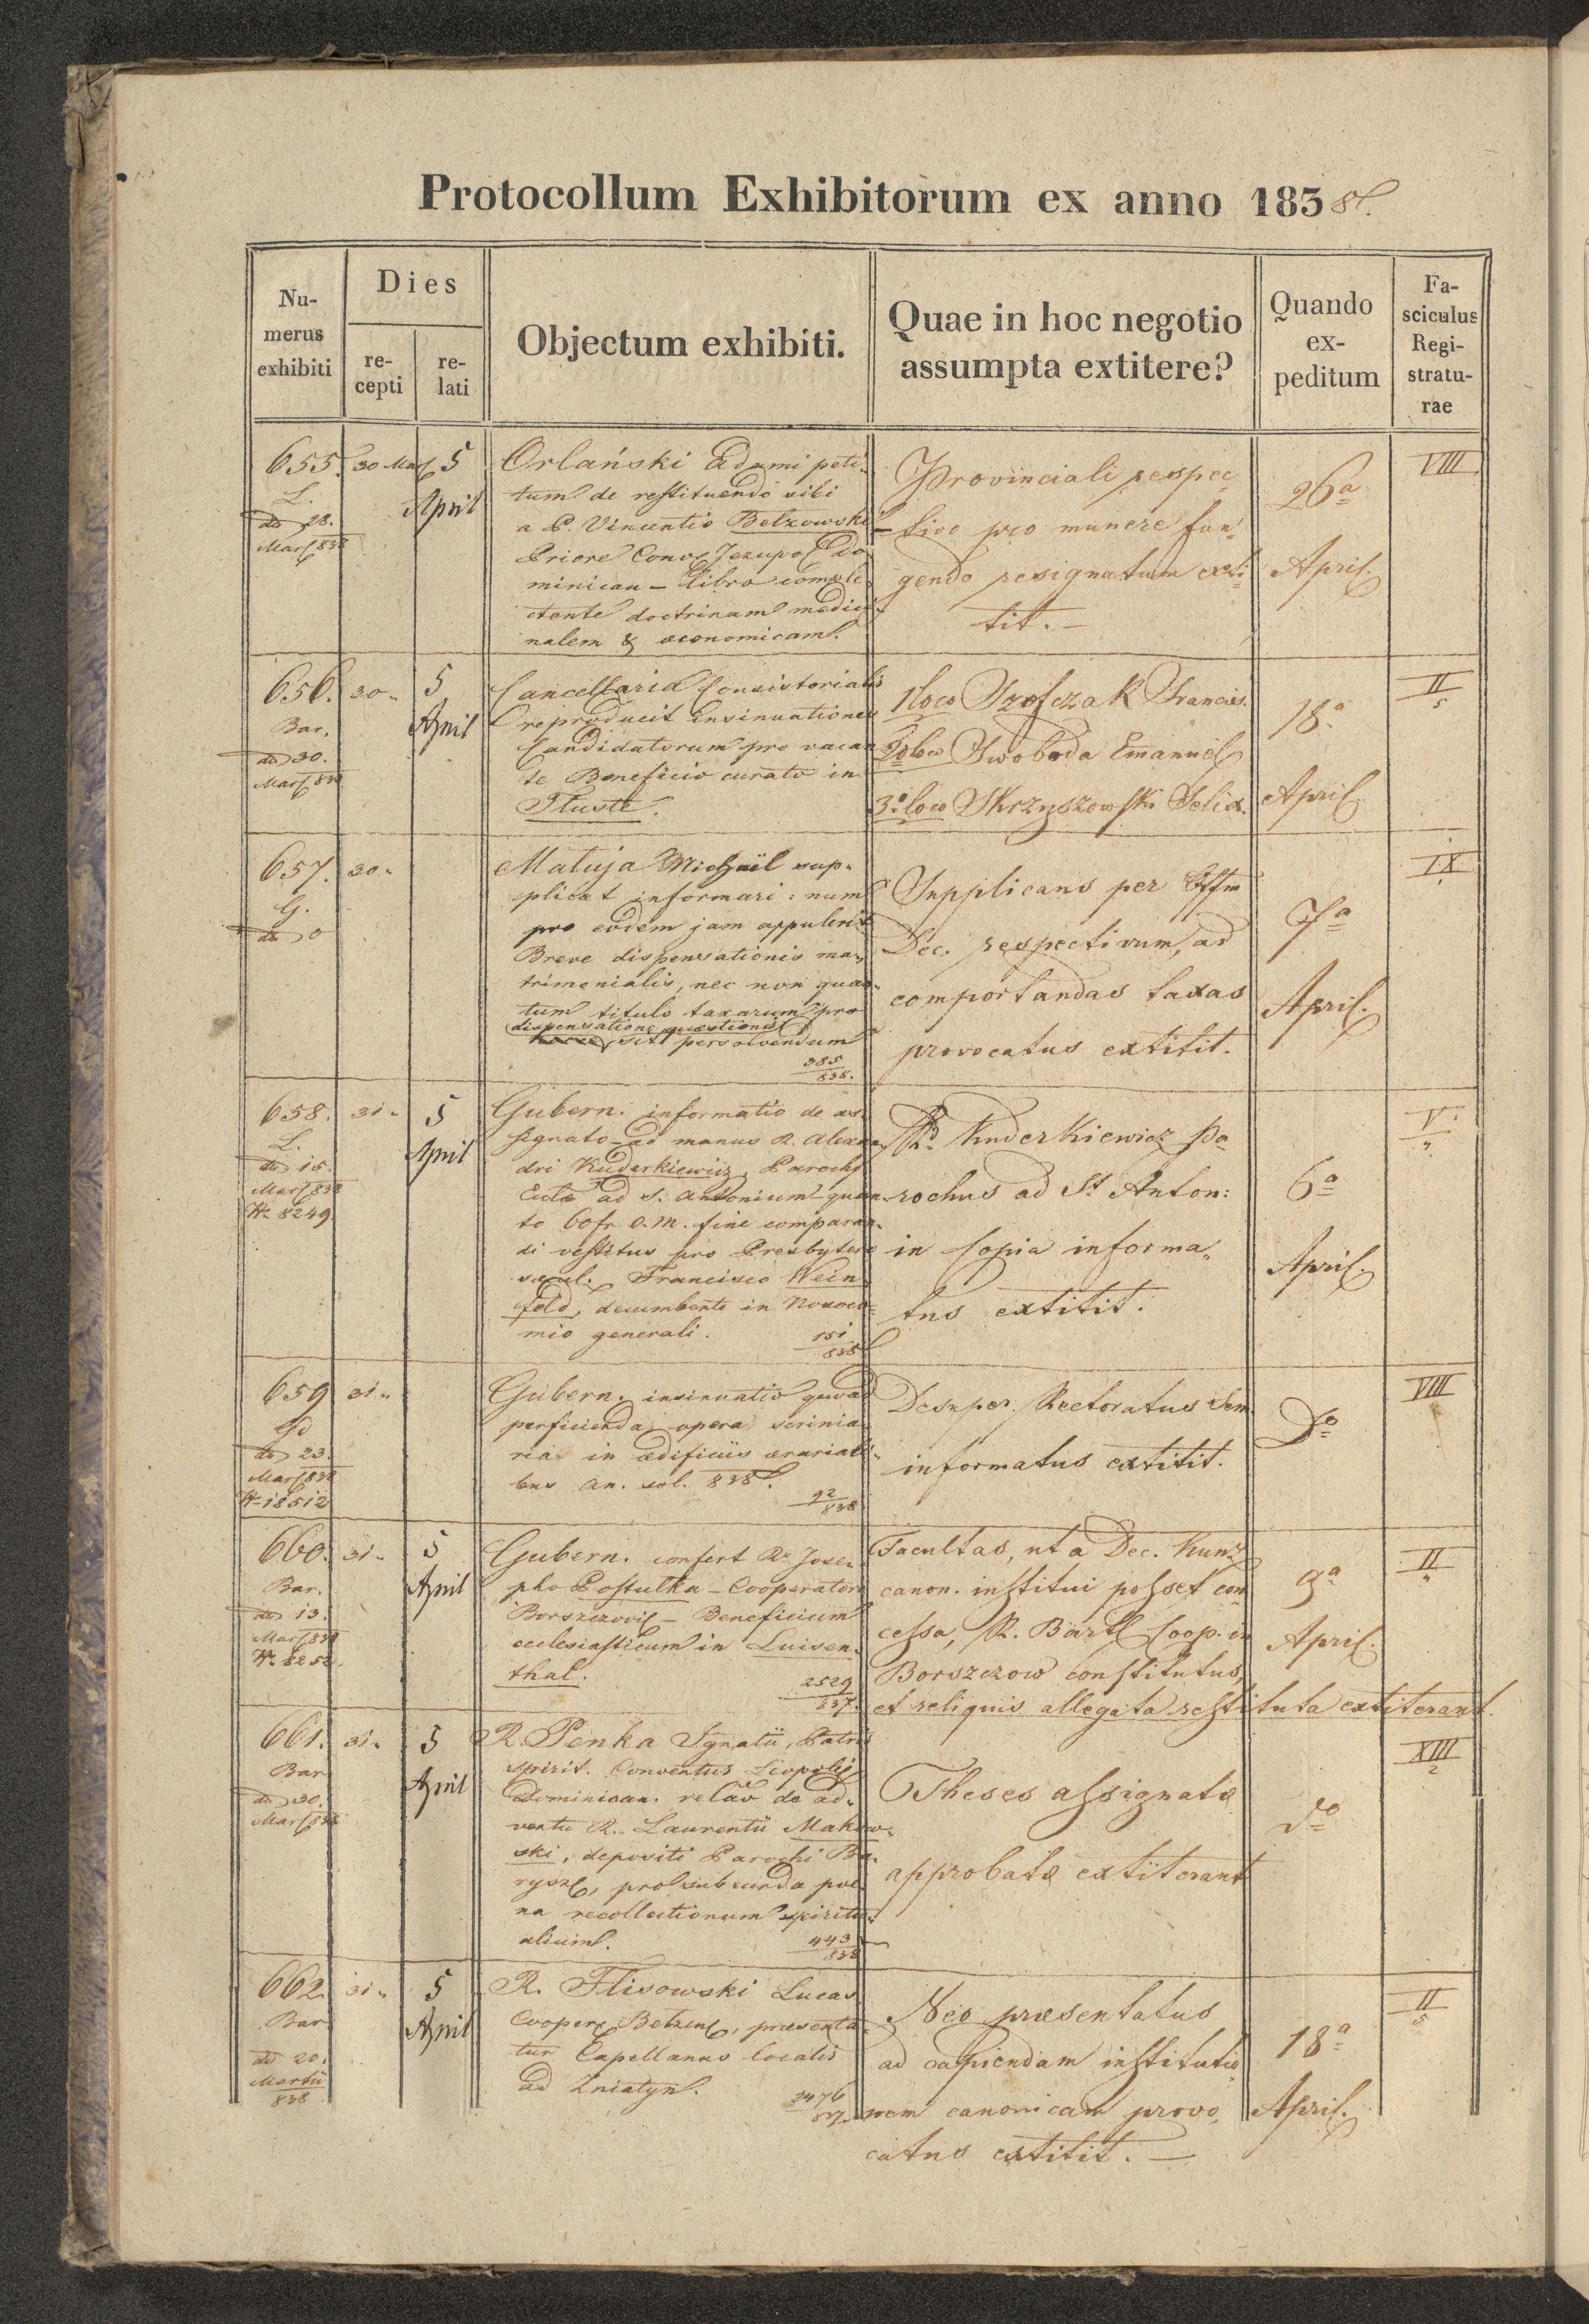 Protocollum Exhibitorum ex anno 1838.
Nu-
merus
exhibiti
Dies
re-
cepti
re-
lati
Objectum exhibiti.
Quae in hoc negotio
assumpta extitere?
Quando
ex-
peditum
Fa-
sciculus
Regi-
stratu-
rae
655.
L.
do 28.
Mart 838
30 Mart
5
April
Orlański Adami peti-
tum de restituendo sibi
a P. Vincentio Betzowski
Priore Conv. Jezupol Do
minican – libro comple-
ctente doctrinam medici-
nalem & oeconomicam.
Provinciali respec-
tivo pro munere fun-
gendo resignatum exti-
tit. –
26a
April.
VIII
656.
Bar.
do 30.
Mart 838
30 "
5
April
Cancellaria Consistorialis
reproducit insinuationes
Candidatorum pro vacan
te Beneficio curato in
Tłuste.
1 loco Francis.
2do loco Swoboda Emanuel
3o loco Skrzyszowski Felix.
18a
April
II
5
657.
G.
do o
30 "
Matuja Michaïl sup-
plicat informari: num
pro eodem jam appulerit
Breve dispensationis ma-
trimonialis, nec non quan-
tum titulo taxarum pro
dispensatione quaestionis
sit persolvendum
385
838.
Supplicans per Offm
Dec. respectivum, ad
comportandas taxas
provocatus extitit.
7a
April.
IX
658.
L.
do 15.
Mart 838
N. 8249
31 "
5
April
Gubern. informatio de as-
signato ad manus R. Alexan-
dri Kuderkiewicz, Parochi
Eccla ad S. Antonium quan-
to 60 fr. C.M. fine comparan-
di vestitus pro Presbytero
saecul. Francisco Wein
feld, decumbente in Nosoco-
mio generali.
151
838
Rd. Kuderkiewicz Pa
rochus ad St. Anton:
in Copia informa-
tus extitit.
6a
April.
V.
659
do 23.
Mart 838
N. 18512
31 "
Gubern. insinuatio quoad
perficienda opera scrinia-
ria in aedificiis aerariali-
bus an. sol. 838.
92
838
Desuper Rectoratus Sem.
informatus extitit.
Do
VIII
660.
Bar.
do 13.
Mart 838
N. 8252.
31 "
5
April
Gubern. confert Rr. Jose-
pho Postulka – Cooperatori
Borszczovi – Beneficium
ecclesiasticum in Luisen-
thal.
2529
837.
Facultas, ut a Dec. Kunz
canon. institui posset con
cessa, R. Bärtl Coop. in
Borszczow constitutus,
et reliquis allegata restituta extiterant.
9a
April.
II
661.
Bar
do 30.
Mart 838
31 "
5
April
R. Penka Ignatii, Patris
spirit. Conventus Leopoli
Dominican. relao de ad-
ventu R. Laurentii Makow-
ski, depositi Parochi Ba-
rysz, pro subeunda poe-
na recollectionum spiritu-
alium.
443
838
Theses assignatae
approbatae extiterant
do
XIII
2
662.
Bar
do 20.
Martii
838
31 "
5
April
R. Flisowski Lucas
Cooper. Betzens, praesenta-
tur Capellanus localis
ad Zniatyn.
2476
837
Neo praesentatus
ad capiendam institutio-
nem canonicam provo-
catus extitit. –
18a
April.
II
5